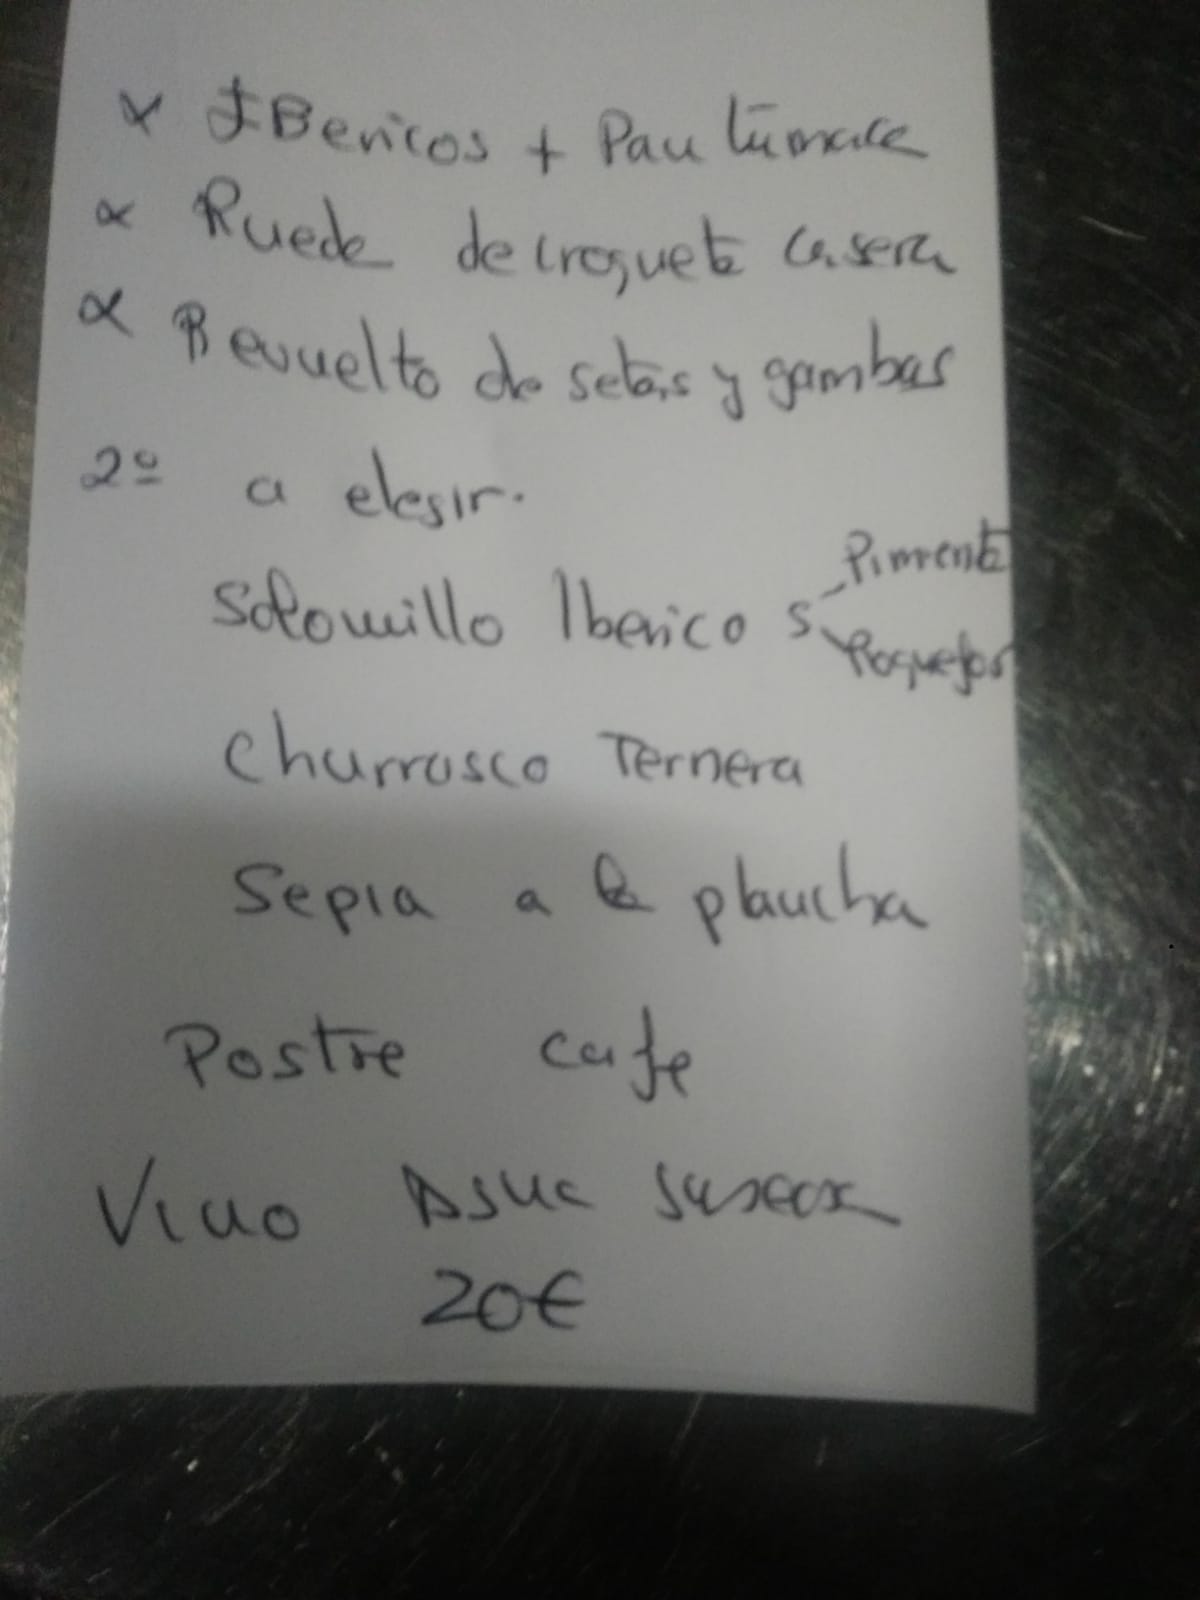 x IBericos + Pan tumaca
x Rueda de croqueta casera
x Revuelto de setas y gambas
2º a elegir.
Solomillo Iberico S Pimienta
Roquefor
Churrasco Ternera
Sepia a la plancha
Postre cafe
Vino Agua
20€